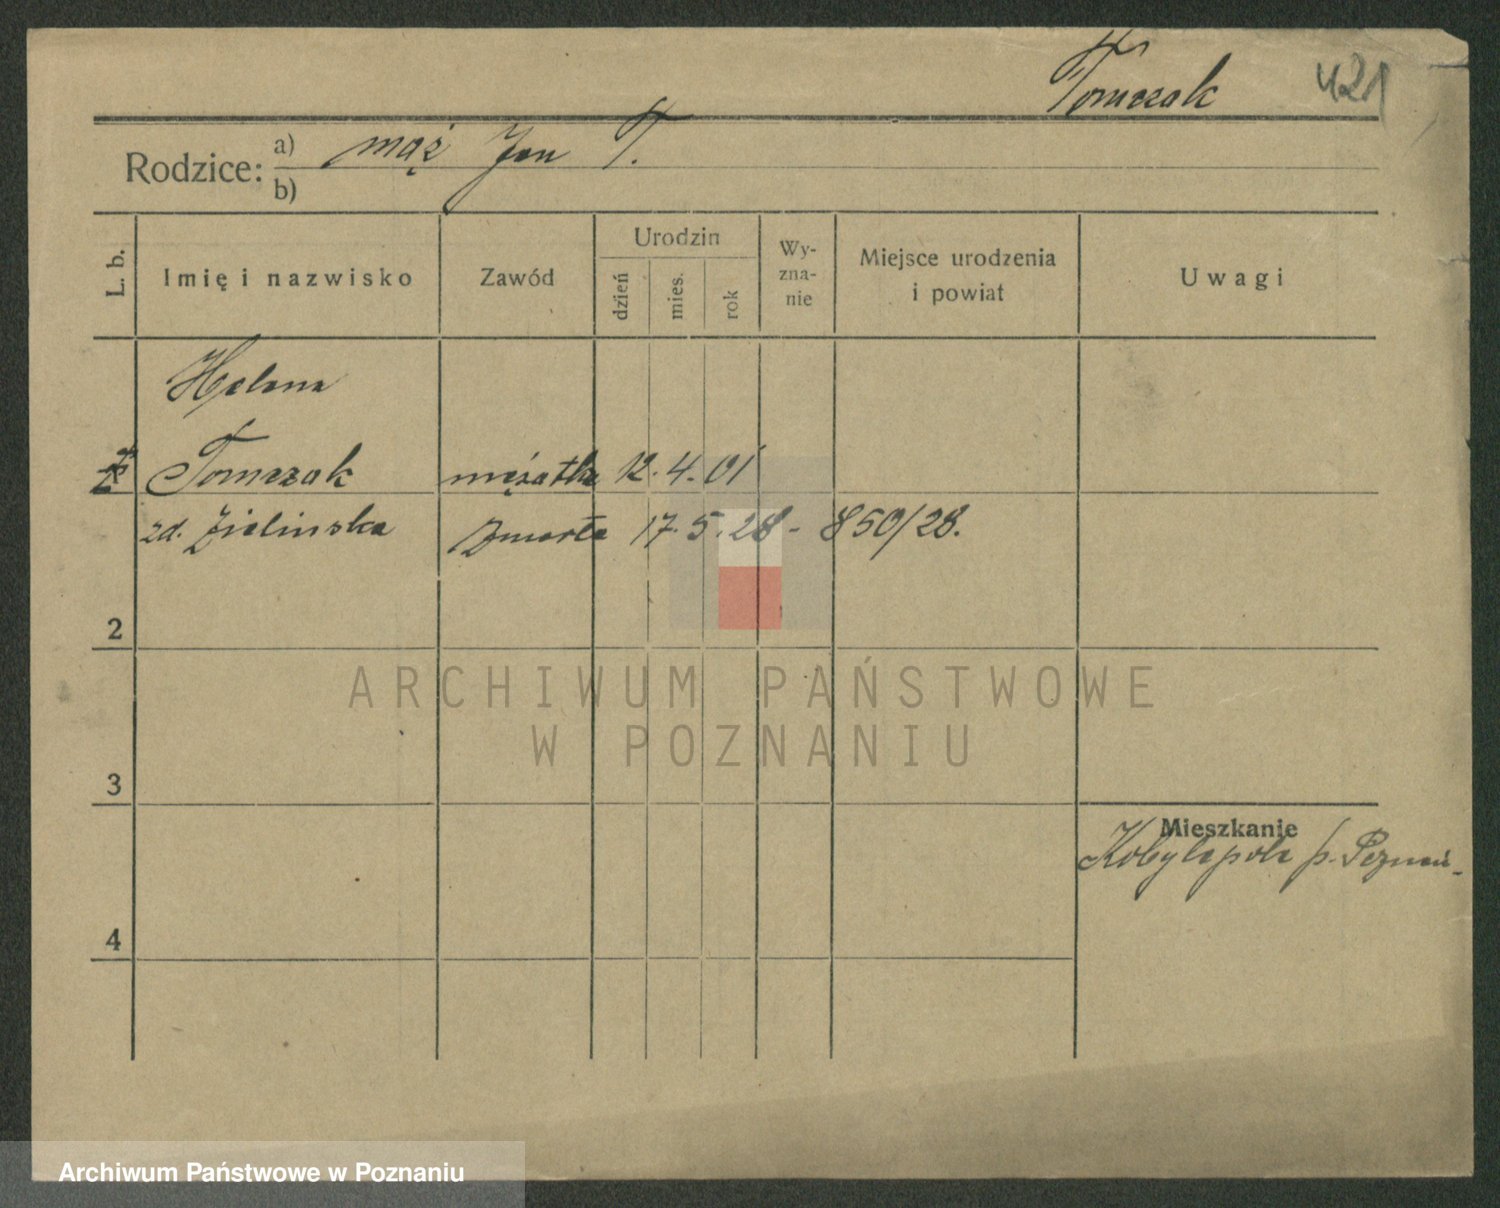 Tomczak 421
Rodzice: a) mąż Jan T.
b)
L. b. Imię i nazwisko Zawód Urodzin dzień mies. rok Wy-zna-nie Miejsce urodzenia i powiat Uwagi
Helena
Tomczak mężatka 12. 4. 01
zd. Zielinska Zmarła 17. 5. 28 - 850/28.
2
ARCHIWUM PAŃSTWOWE
W POZNANIU
3
Mieszkanie
Kobylepole p. Poznań
4
Archiwum Państwowe w Poznaniu